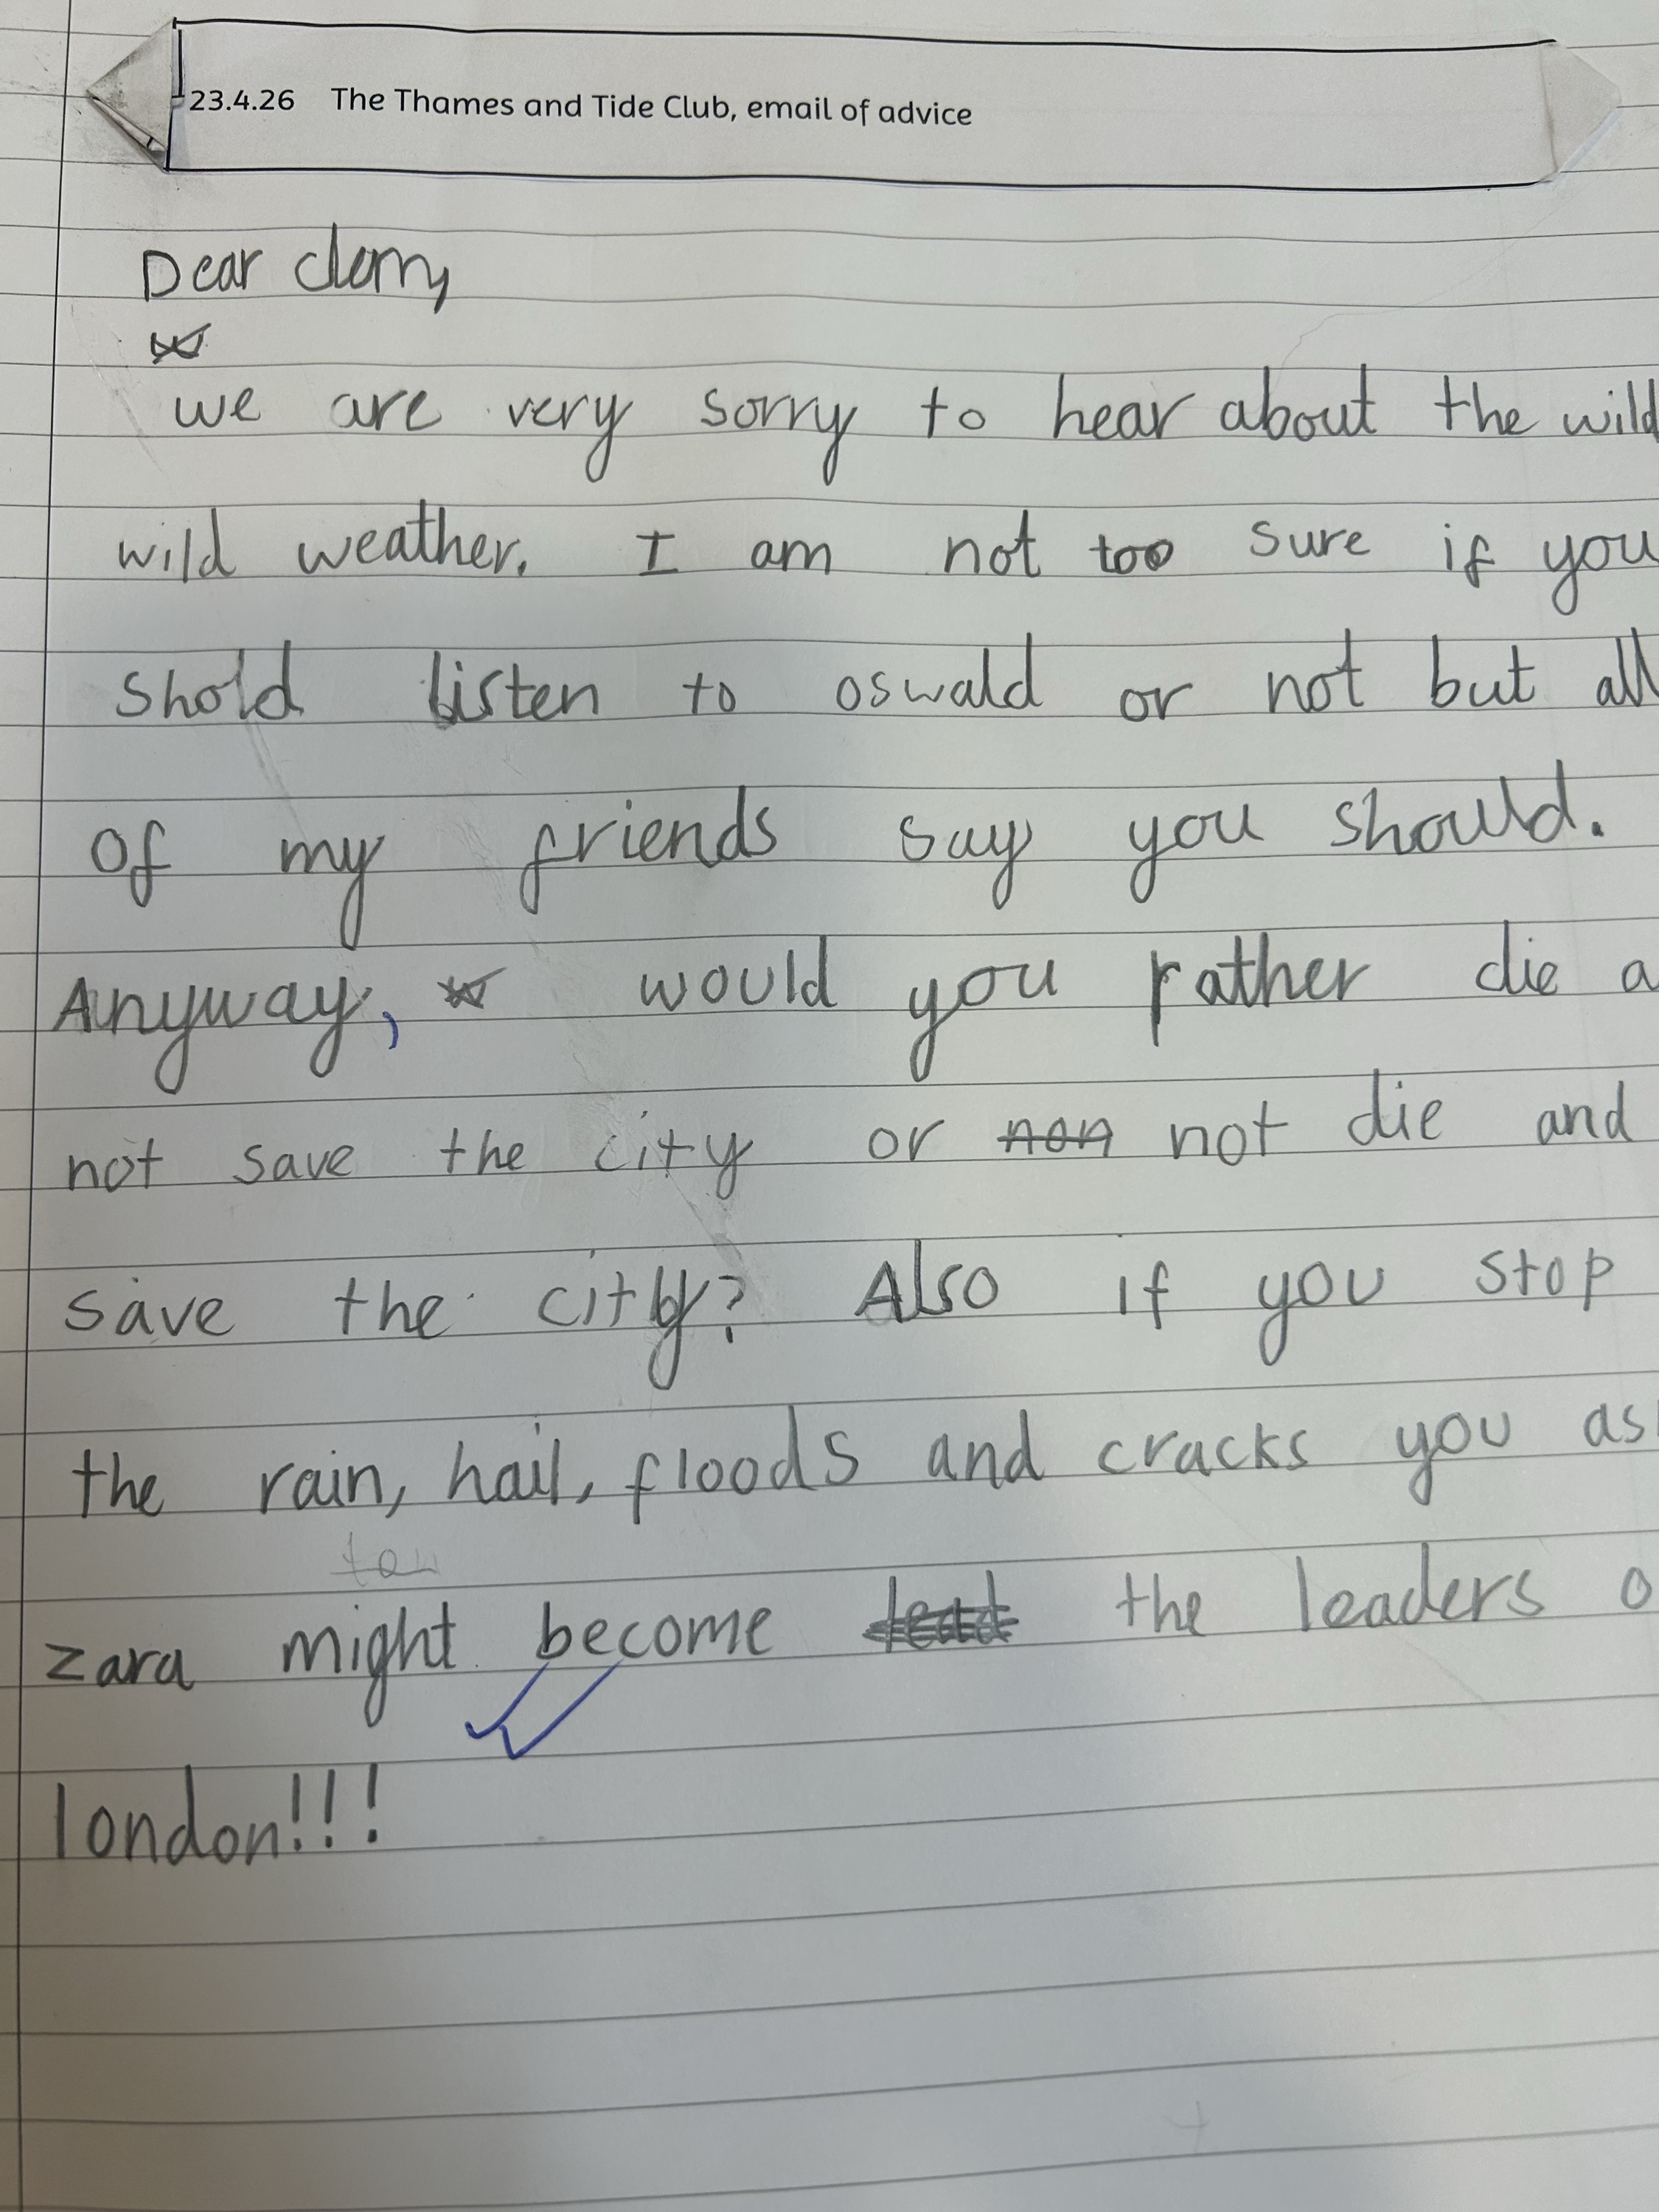 23.4.26 The Thames and Tide Club, email of advice
Dear clem,
we are very sorry to hear about the wild
wild weather. I am not too sure if you
shold listen to oswald or not but all
of my friends say you should.
Anyway, would you rather die a
not save the city or non not die and
save the city? Also if you stop
the rain, hail, floods and cracks you as
zara might become lead the leaders o
london!!!